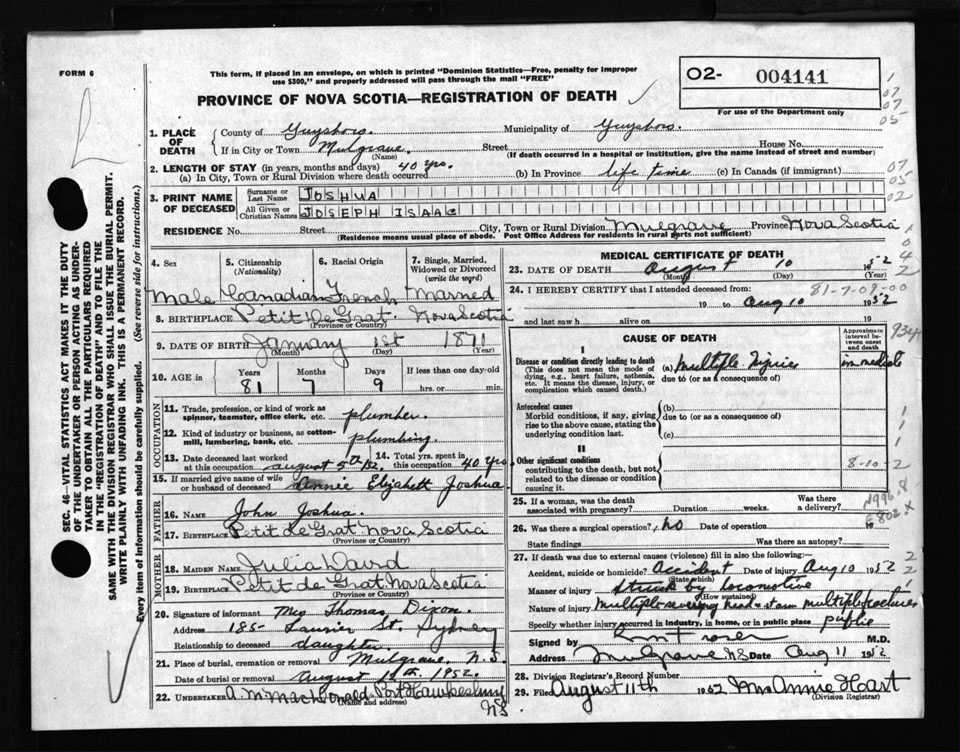 FORM 6
This form, if placed in an envelope, on which is printed "Dominion Statistics—Free, penalty for improper
use $300," and properly addressed will pass through the mail "FREE"
O2- 004141
For use of the Department only
PROVINCE OF NOVA SCOTIA—REGISTRATION OF DEATH
SEC. 46—VITAL STATISTICS ACT MAKES IT THE DUTY
OF THE UNDERTAKER OR PERSON ACTING AS UNDER-
TAKER TO OBTAIN ALL THE PARTICULARS REQUIRED
IN THE "REGISTRATION OF DEATH" AND TO FILE THE
SAME WITH THE DIVISION REGISTRAR WHO SHALL ISSUE THE BURIAL PERMIT.
WRITE PLAINLY WITH UNFADING INK. THIS IS A PERMANENT RECORD.
Every item of information should be carefully supplied. (See reverse side for instructions.)
1. PLACE OF DEATH
County of Guysboro. Municipality of Guysboro.
If in City or Town Mulgrave. Street House No.
(Name) (If death occurred in a hospital or institution, give the name instead of street and number)
2. LENGTH OF STAY (in years, months and days) 40 yrs.
(a) In City, Town or Rural Division where death occurred (b) In Province life time (c) In Canada (if immigrant)
3. PRINT NAME OF DECEASED
Surname or Last Name JOSHUA
All Given or Christian Names JOSEPH ISAAC
RESIDENCE No. Street City, Town or Rural Division Mulgrave Province Nova Scotia
(Residence means usual place of abode. Post Office Address for residents in rural parts not sufficient)
4. Sex 5. Citizenship (Nationality) 6. Racial Origin 7. Single, Married, Widowed or Divorced (write the word)
Male Canadian French Married
8. BIRTHPLACE Petit de Grat. Nova Scotia
(Province or Country)
9. DATE OF BIRTH January 1st 1871
(Month) (Day) (Year)
10. AGE in Years Months Days If less than one day old
81 7 9 hrs. or min.
OCCUPATION
11. Trade, profession, or kind of work as
spinner, teamster, office clerk, etc. plumber.
12. Kind of industry or business, as cotton-
mill, lumbering, bank, etc. plumbing.
13. Date deceased last worked at this occupation August 5th 52.
14. Total yrs. spent in this occupation 40 yrs.
15. If married give name of wife
or husband of deceased Annie Elizabeth Joshua
FATHER
16. Name John Joshua.
17. Birthplace Petit de Grat Nova Scotia
(Province or Country)
MOTHER
18. Maiden Name Julia David
19. Birthplace Petit de Grat Nova Scotia
(Province or Country)
20. Signature of informant Mrs Thomas Dixon.
Address 185- Laurier St. Sydney
Relationship to deceased daughter
21. Place of burial, cremation or removal Mulgrave N.S.
Date of burial or removal August 1952.
22. UNDERTAKER A. M. MacDonald Port Hawkesbury
(Name and address) NS.
MEDICAL CERTIFICATE OF DEATH
23. DATE OF DEATH August 10 1952
(Month) (Day) (Year)
24. I HEREBY CERTIFY that I attended deceased from: 81-7-09-00
19 to Aug 10 1952
and last saw h alive on 19
CAUSE OF DEATH
Approximate interval between onset and death
934
I
Disease or condition directly leading to death
(This does not mean the mode of
dying, e.g., heart failure, asthenia,
etc. It means the disease, injury, or
complication which caused death.)
(a) Multiple Injuries immediate
due to (or as a consequence of)
Antecedent causes
Morbid conditions, if any, giving
rise to the above cause, stating the
underlying condition last.
(b)
due to (or as a consequence of)
(c)
II
Other significant conditions
contributing to the death, but not
related to the disease or condition
causing it.
8-10-2
25. If a woman, was the death
associated with pregnancy? Duration weeks. Was there a delivery?
N996.8
E802 x
26. Was there a surgical operation? no Date of operation
State findings Was there an autopsy?
27. If death was due to external causes (violence) fill in also the following:—
Accident, suicide or homicide? Accident Date of injury Aug 10 1952
(State which)
Manner of injury Struck by locomotive
(How sustained)
Nature of injury Multiple severing head & arm multiple fractures
Specify whether injury occurred in industry, in home, or in public place public
Signed by M.D.
Address Mulgrave NS Date Aug 11 1952
28. Division Registrar's Record Number
29. Filed August 11th 1952 Mrs Annie Hoast
(Division Registrar)